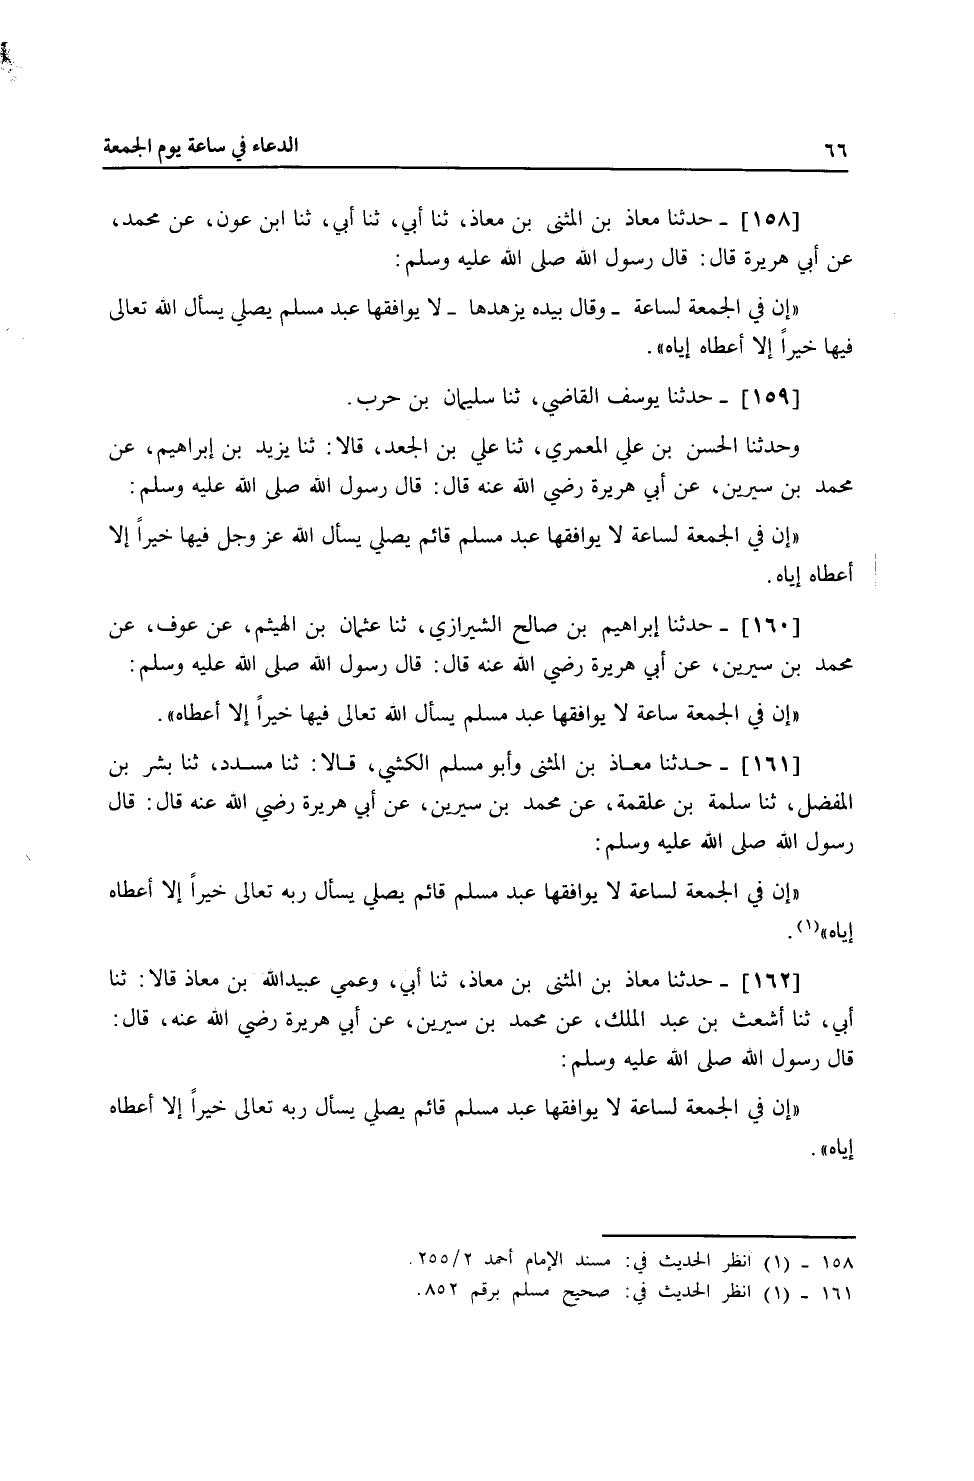 ٦٦ الدعاء في ساعة يوم الجمعة
[١٥٨] ـ حدثنا معاذ بن المثنى بن معاذ، ثنا أبي، ثنا أبي، ثنا ابن عون، عن محمد،
عن أبي هريرة قال: قال رسول الله صلى الله عليه وسلم:
«إن في الجمعة لساعة ـ وقال بيده يزهدها ـ لا يوافقها عبد مسلم يصلي يسأل الله تعالى
فيها خيراً إلا أعطاه إياه».
[١٥٩] ـ حدثنا يوسف القاضي، ثنا سليمان بن حرب.
وحدثنا الحسن بن علي المعمري، ثنا علي بن الجعد، قالا: ثنا يزيد بن إبراهيم، عن
محمد بن سيرين، عن أبي هريرة رضي الله عنه قال: قال رسول الله صلى الله عليه وسلم:
«إن في الجمعة لساعة لا يوافقها عبد مسلم قائم يصلي يسأل الله عز وجل فيها خيراً إلا
أعطاه إياه.
[١٦٠] ـ حدثنا إبراهيم بن صالح الشيرازي، ثنا عثمان بن الهيثم، عن عوف، عن
محمد بن سيرين، عن أبي هريرة رضي الله عنه قال: قال رسول الله صلى الله عليه وسلم:
«إن في الجمعة ساعة لا يوافقها عبد مسلم يسأل الله تعالى فيها خيراً إلا أعطاه».
[١٦١] ـ حدثنا معاذ بن المثنى وأبو مسلم الكشي، قالا: ثنا مسدد، ثنا بشر بن
المفضل، ثنا سلمة بن علقمة، عن محمد بن سيرين، عن أبي هريرة رضي الله عنه قال: قال
رسول الله صلى الله عليه وسلم:
«إن في الجمعة لساعة لا يوافقها عبد مسلم قائم يصلي يسأل ربه تعالى خيراً إلا أعطاه
إياه»(١).
[١٦٢] ـ حدثنا معاذ بن المثنى بن معاذ، ثنا أبي، وعمي عبيدالله بن معاذ قالا: ثنا
أبي، ثنا أشعث بن عبد الملك، عن محمد بن سيرين، عن أبي هريرة رضي الله عنه، قال:
قال رسول الله صلى الله عليه وسلم:
«إن في الجمعة لساعة لا يوافقها عبد مسلم قائم يصلي يسأل ربه تعالى خيراً إلا أعطاه
إياه».
١٥٨ ـ (١) انظر الحديث في: مسند الإمام أحمد ٢/٢٥٥.
١٦١ ـ (١) انظر الحديث في: صحيح مسلم برقم ٨٥٢.